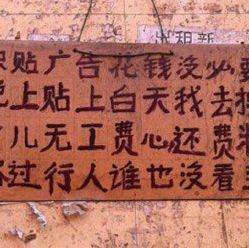 出租新
贴广告花钱没必要
上贴上白天我去
儿无工费心还费
过行人谁也没看